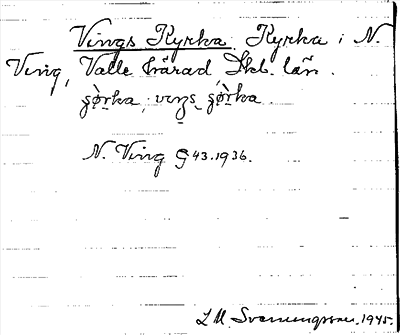 Vings Kyrka. Kyrka i N.
Ving, Valle härad, Skb. län.
N. Ving G 43.1936.
L M. Svenungsson. 1945.